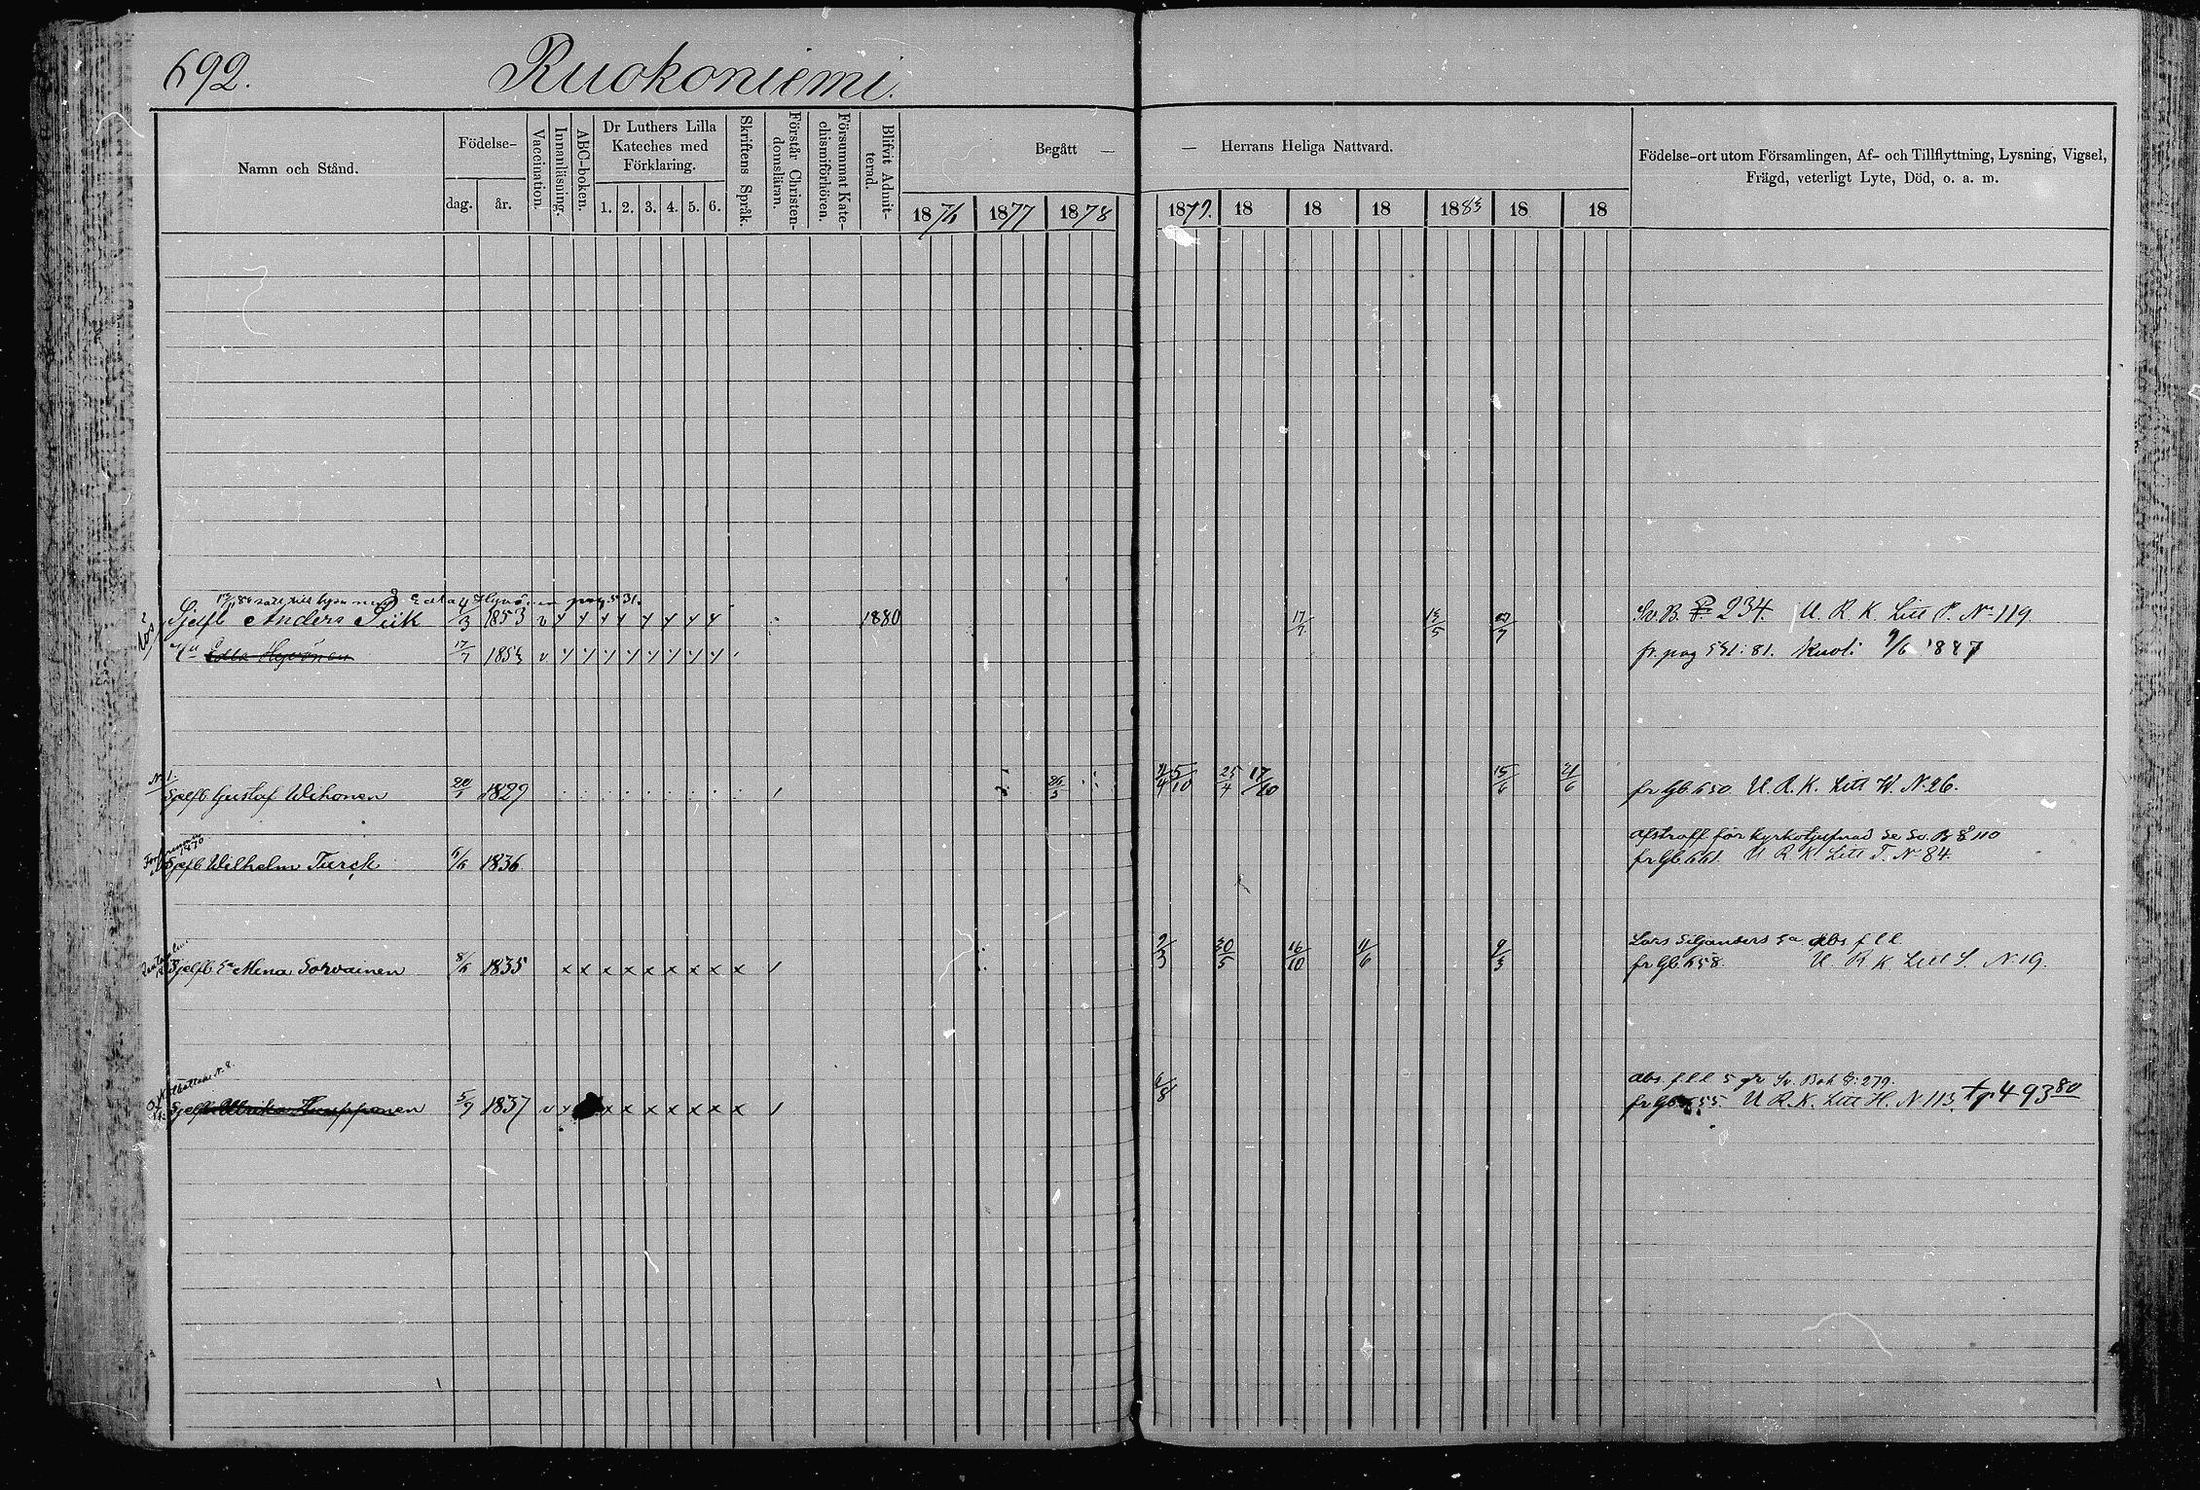 692. Ruokoniemi.
Namn och Stånd.
Födelse-
dag.
år.
Vaccination.
Innanläsning.
ABC-boken.
Dr Luthers Lilla
Kateches med
Förklaring.
1. 2. 3. 4. 5. 6.
Skriftens Språk.
Förstår Christen-
domsläran.
Försummat Kate-
chismiförhören.
Blifvit Admit-
terad.
Begått —
— Herrans Heliga Nattvard.
1876 1877 1878 1879. 18 18 18 1883 18 18
Födelse-ort utom Församlingen, Af- och Tillflyttning, Lysning, Vigsel,
Frägd, veterligt Lyte, Död, o. a. m.
Sjelfb Anders Piik 4/3 1853 v y y y y y y y y 1880 17/7 13/5 Sv. B. P. 234. U. R. K. Litt P. No 119.
Edla Hyvönen 17/7 1853 v y y y y y y y y fr. pag 531: 81. Kuoli 9/6 1887
No 1.
Sjelfb Gustaf Wihonen 1829 5/10 25/4 17/10 15/6 21/6 fr Gb. 650. U. R. K. Litt W. N. 26.
afstraff för Kyrkotjufnad se Sv. B. 110
Sjelfb Wilhelm Turck 6/6 1836. fr Gb 661. U. R. K. Litt T. N 84.
Sjelfb Ea Mina Sorvainen 8/6 1835 x x x x x x x x x 9/3 30/5 16/10 11/6 9/3
Lars Siljanders Ea abs f l l
fr Gb. 658. U. R. K. Litt S. N. 19.
Sjelfb Ulrika Huupponen 5/9 1837 v x x x x x x x x 6/8
abs. f l l 5 gr Sv. Bok P: 279.
U. R. K. Litt H. N 113. tp 493 80